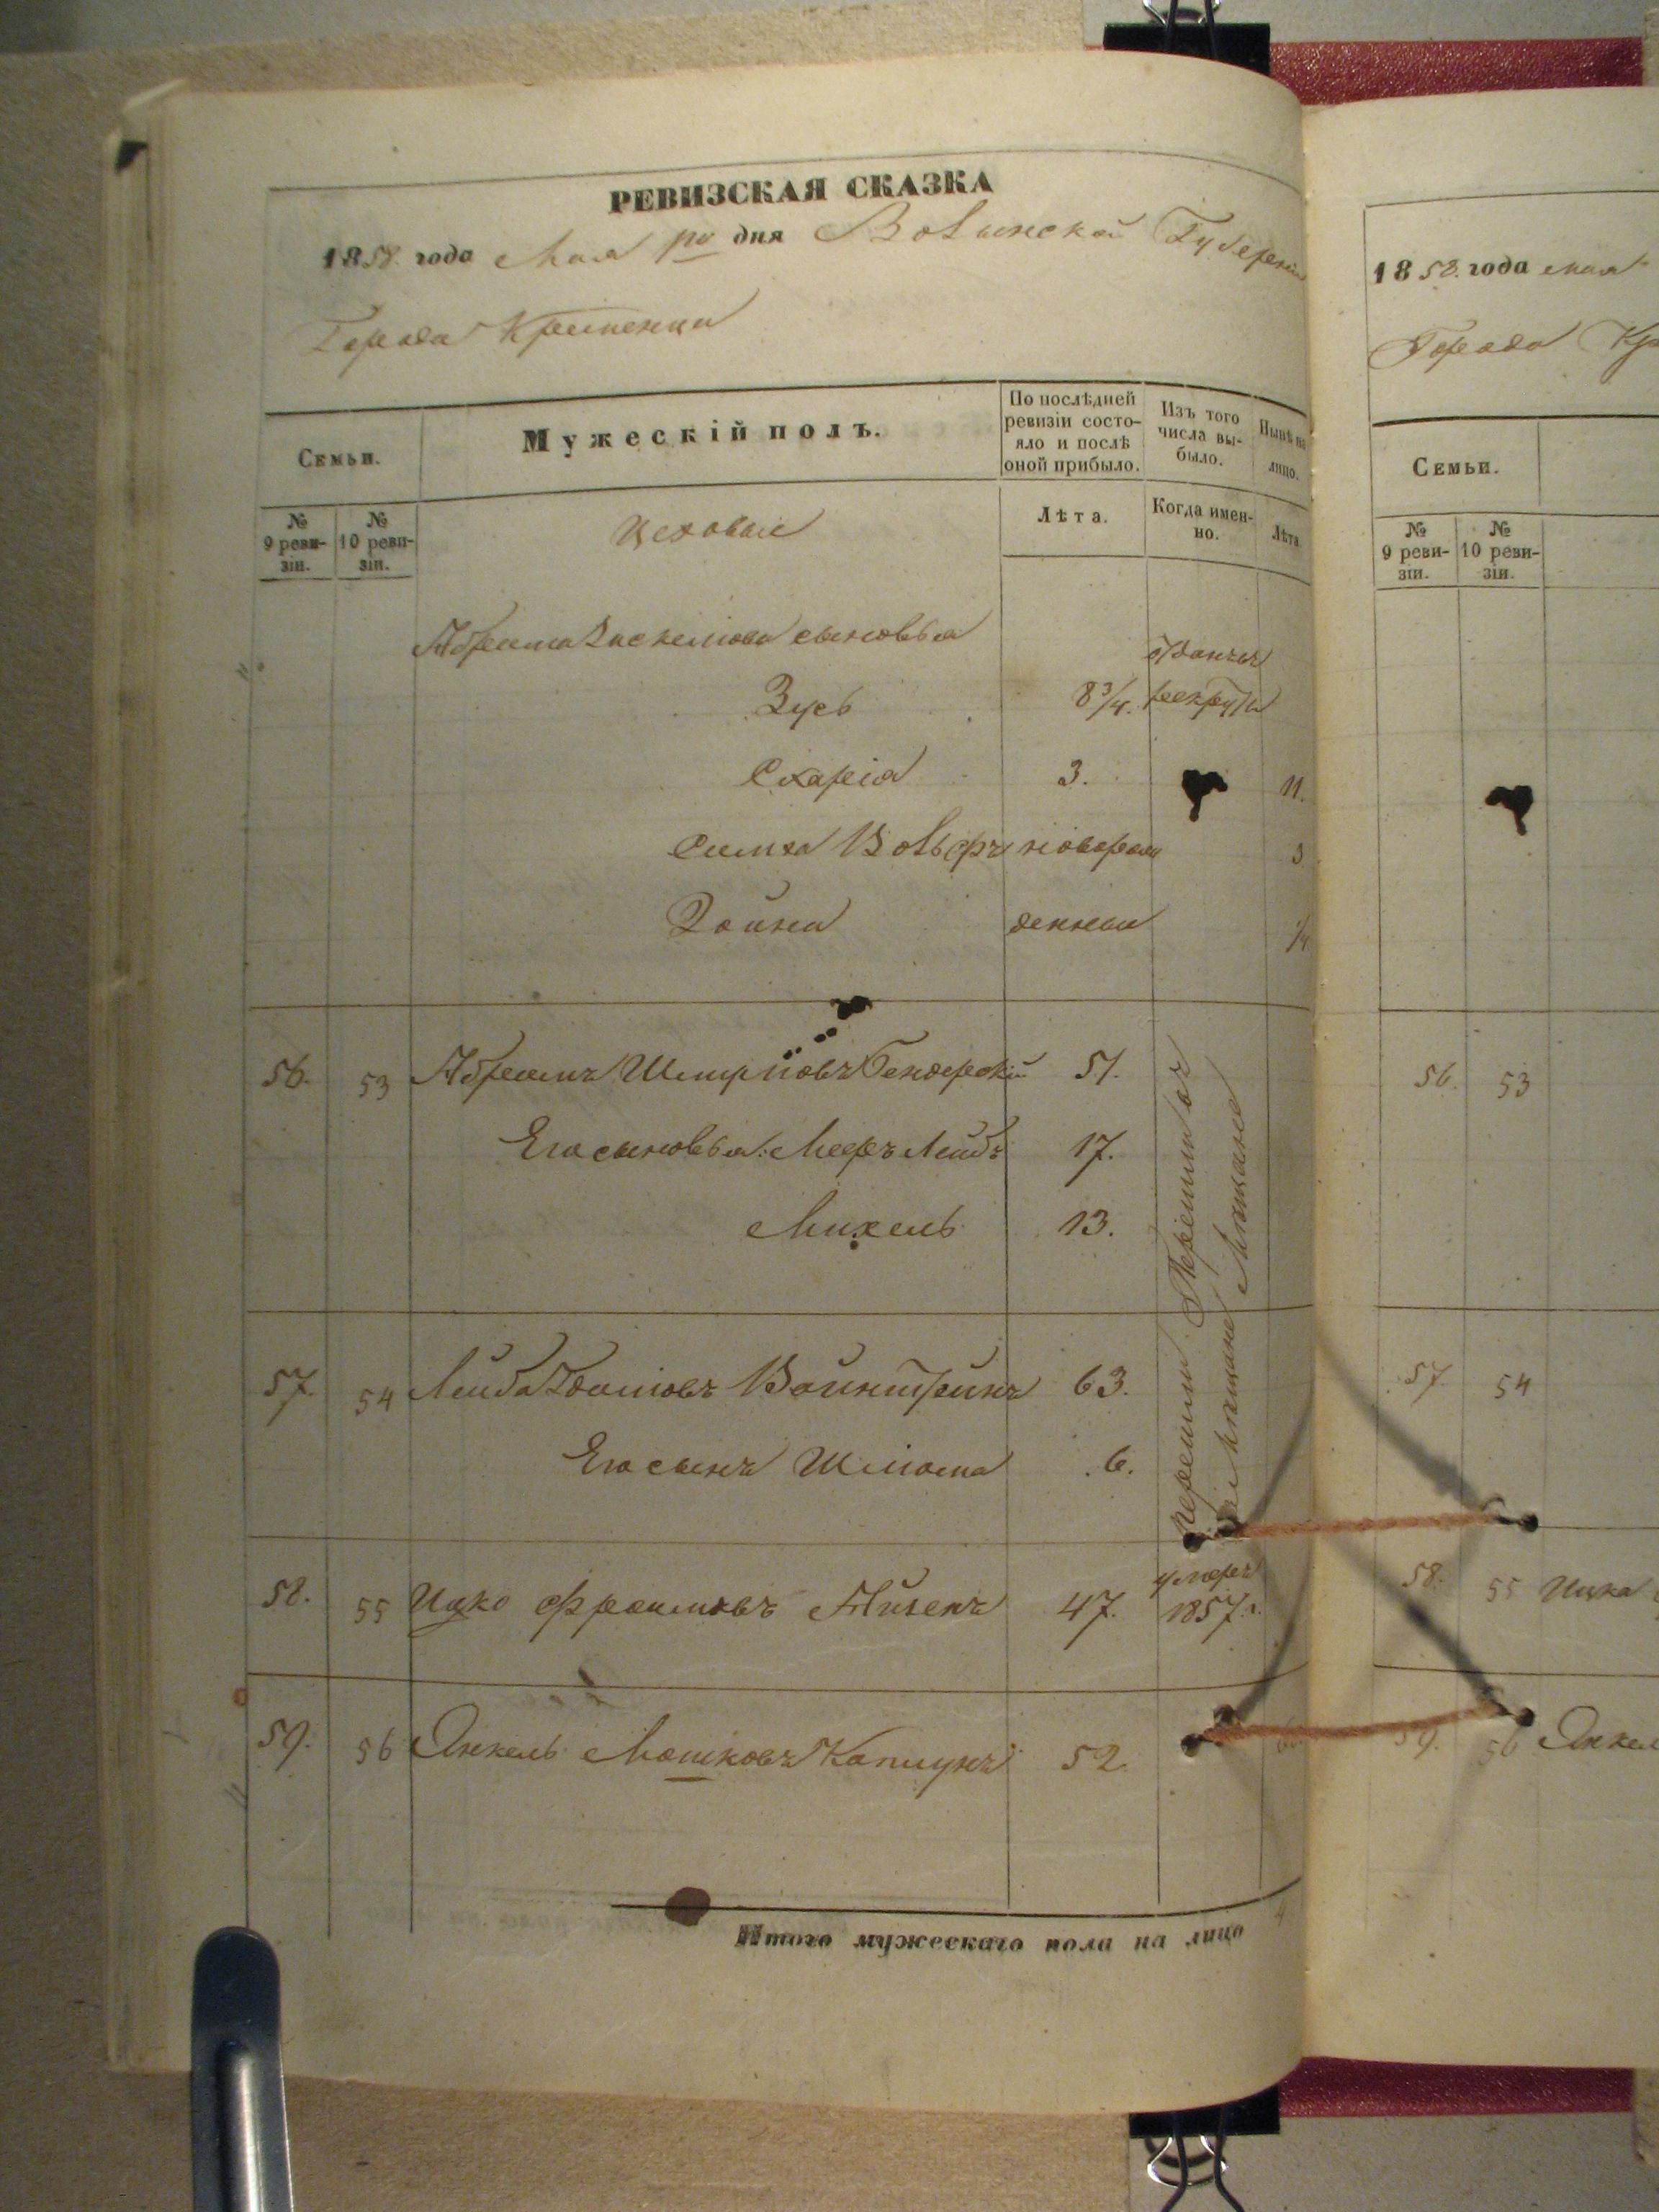 РЕВИЗСКАЯ СКАЗКА
1858. года Мая дня Волынской Губерніи
Города Кременца
Семьи.
Мужескій полъ.
По послѣдней ревизіи состо-
яло и послѣ
оной прибыло.
Изъ того
числа вы-
было.
Нынѣ на
лицо.
№
9 реви-
зіи.
№
10 реви-
зіи.
Лѣта.
Когда имен-
но.
Лѣта.
Цеховые
Абрама сыновья
отданъ въ
Зусь 8 3/4. рекруты
Схарія 3. 11.
Симха Вольфъ новорож 3
Дойна денные 1/4
56. 53 Абрамъ Бендерскій 51.
Его сыновья: Мееръ Лейбъ 17.
Михель 13.
Перешли въ
Мѣщане
57. 54 Лейба Вайнштейнъ 63.
Его сынъ Шліома 6.
перешли
въ Мѣщане
58. 55 Ицко Фроимовъ Айзенъ 47. умеръ
1857. г.
59. 56 Янкель Мошковъ Каплунъ 52.
Итого мужескаго пола на лицо 4
1858. года мая
Города Кр
Семьи.
№
9 реви-
зіи.
№
10 реви-
зіи.
56. 53
57. 54
58. 55 Ицка
59. 56 Янкел